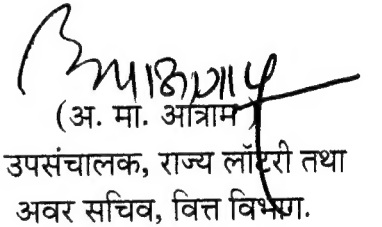 (अ. मा. आत्राम )
उपसंचालक, राज्य लॉटरी तथा
अवर सचिव, वित्त विभाग.